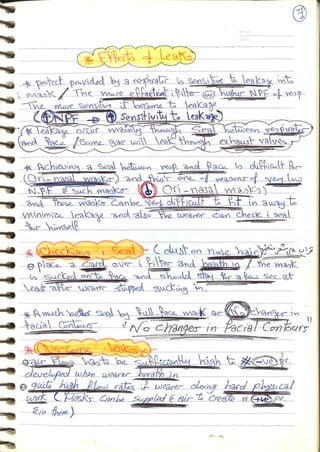 7
* Effects of Leaks
* protect. provided by a respirator is sensitive to leakage into
i mask / The more effectient i filter or higher NPF of resp.
The more sensitive it become to leakage
(↑NPF → ↑ sensitivity to leakage)
* leakage occur mainly through Seal between respirator
and face / Some air will leak through exhaust valves.
* Achieving a seal between resp and face is difficult for
(Ori-nasal masks) and that one of reasons of very low
N.P.F & such masks (↓ Ori-nasal masks)
and these masks can be very difficult to fit in a way to
minimize leakage and also the wearer can check i seal
for himself
* Checking i Seal - (dust on nose hair
⊙ place a Card over i filter and breath in / the mask
is sucked onto face and should stay for a few sec. at
least after wearer stopped sucking in.
* A much better seal by Full face mask or (No) changer in
facial contours "No Changes in Facial Contours"
* Over-come leakage
⊙ air flows has to be sufficiently high to # (-ve) pr.
developed when wearer breath in
⊙ quite high flow rates if wearer doing hard physical
work (Masks can be supplied & air to create a (+ve) pr.
& in them)